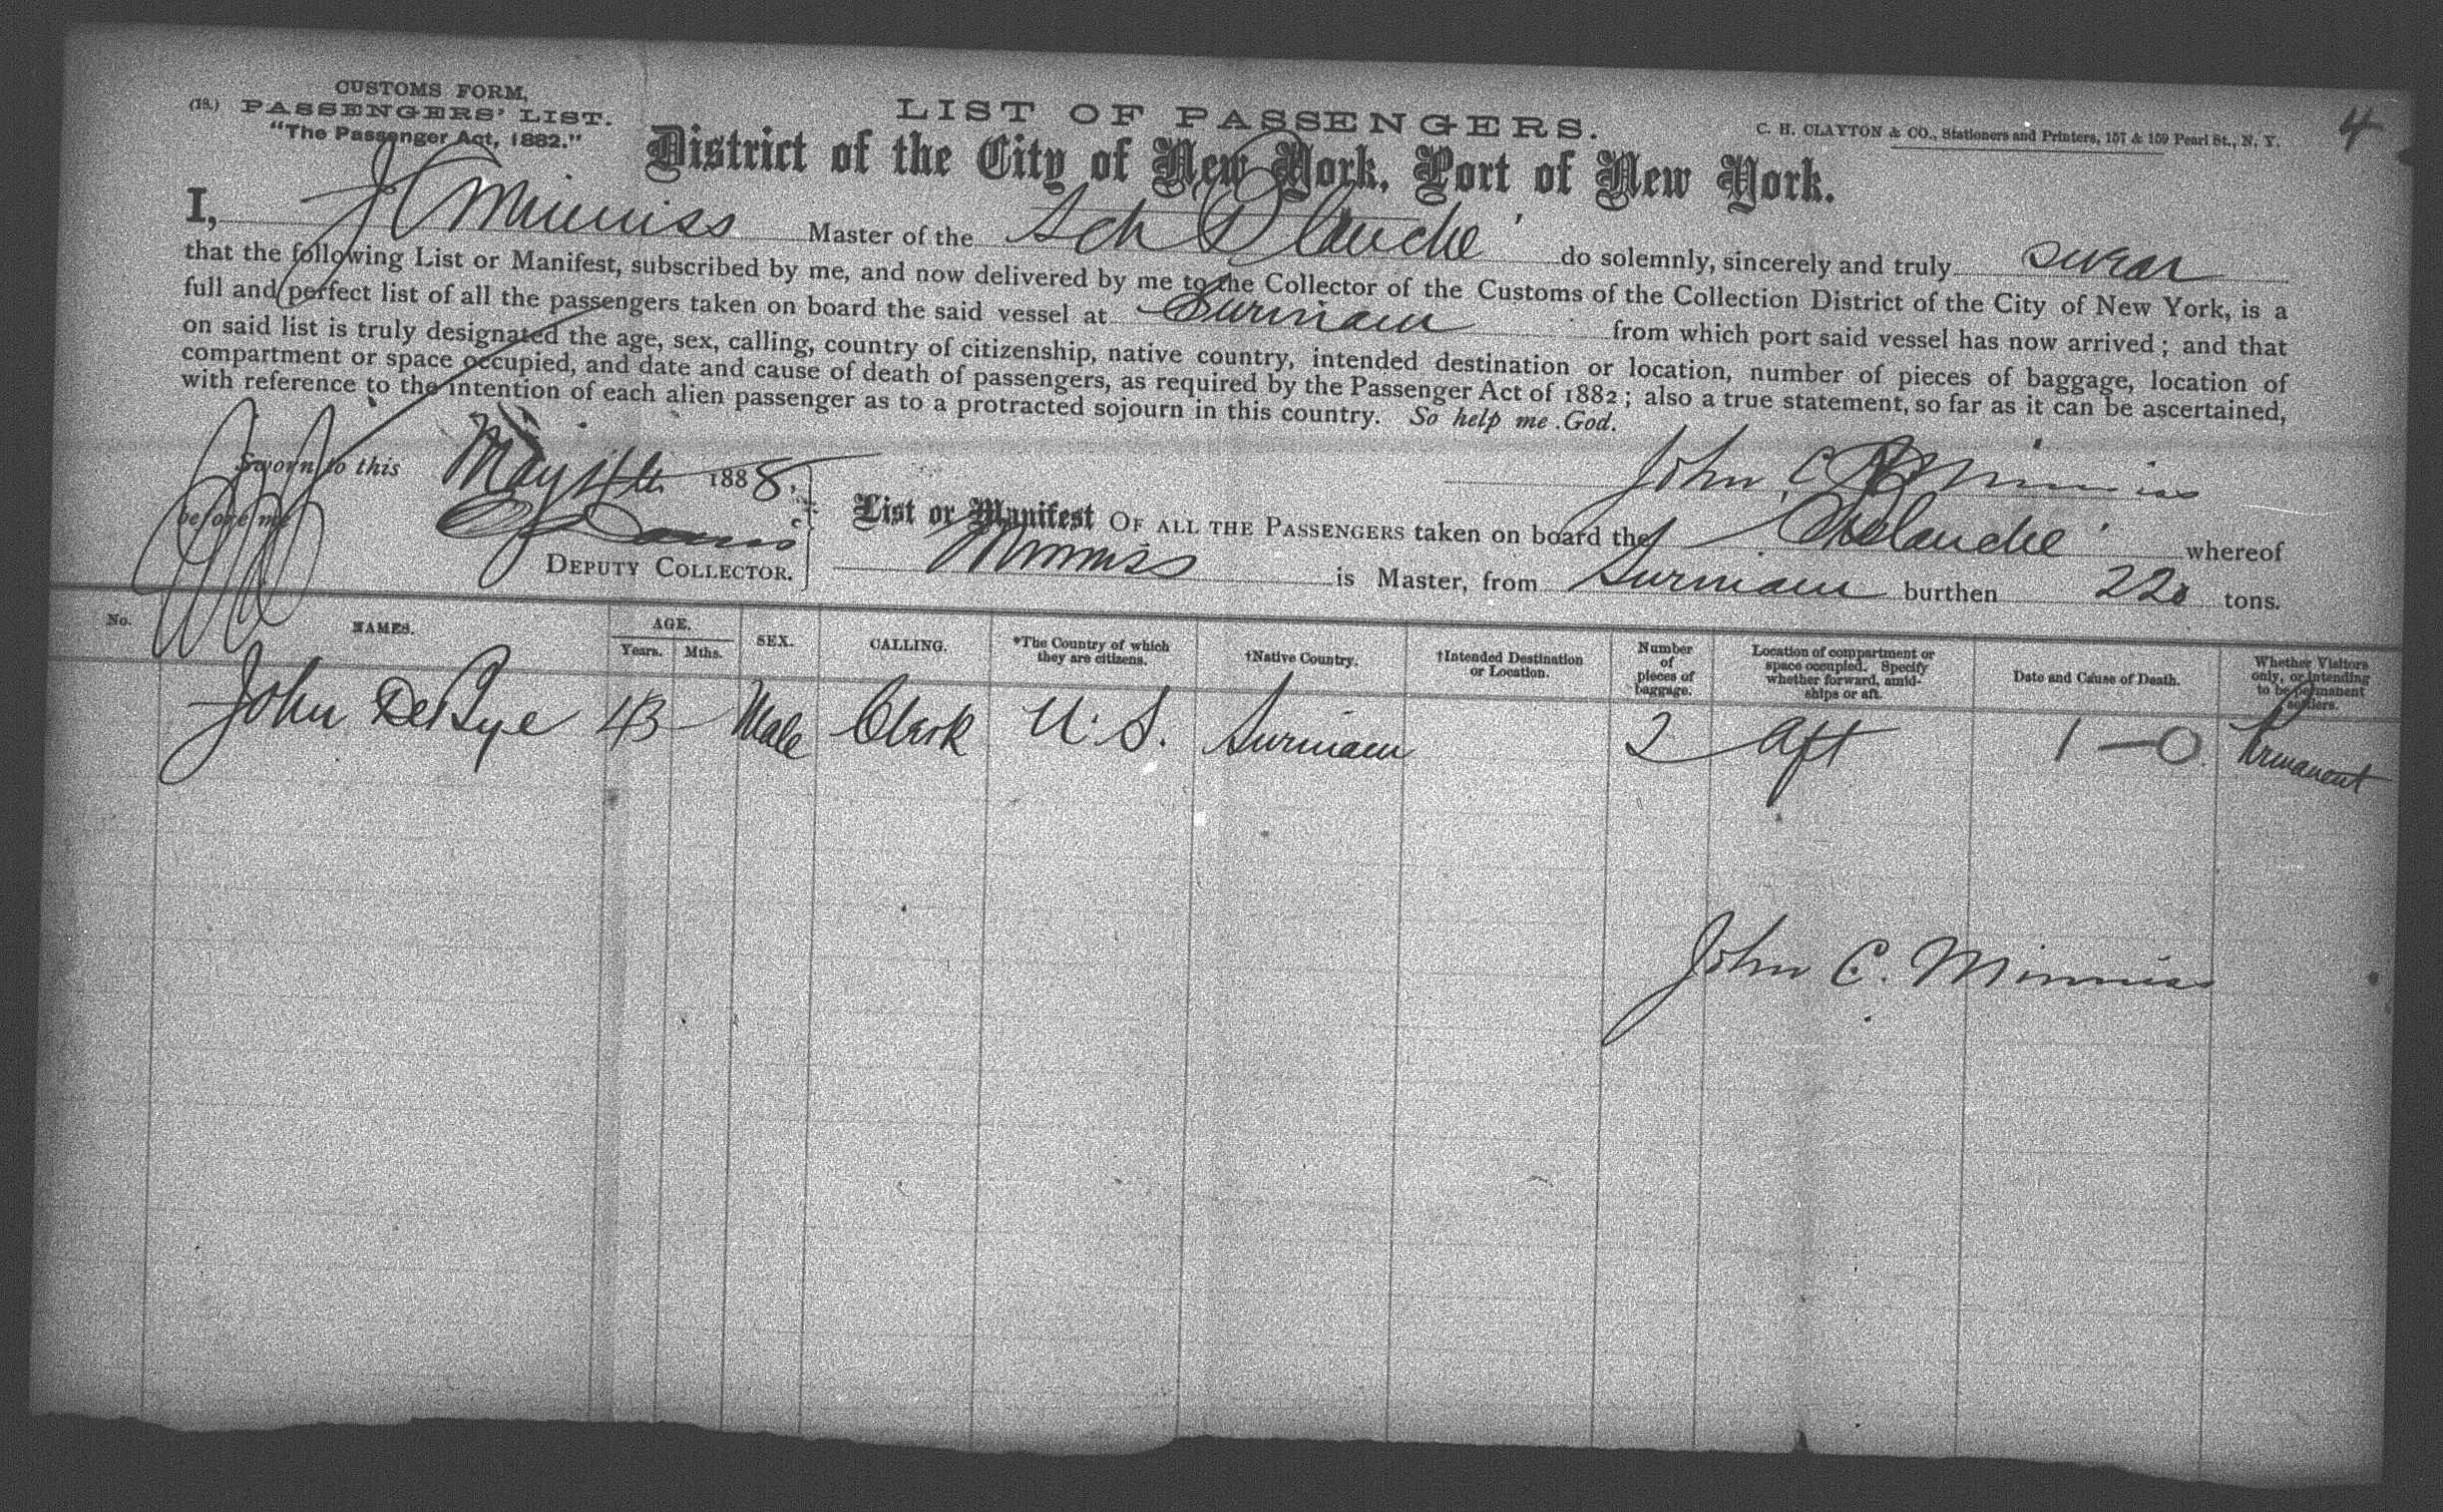 CUSTOMS FORM,
(18.) PASSENGERS' LIST.
"The Passenger Act, 1882."
LIST OF PASSENGERS.
C. H. CLAYTON & CO., Stationers and Printers, 157 & 159 Pearl St., N. Y.
4
District of the City of New York, Port of New York.
I, J C Minniss Master of the Sch Blanche do solemnly, sincerely and truly swear
that the following List or Manifest, subscribed by me, and now delivered by me to the Collector of the Customs of the Collection District of the City of New York, is a
full and perfect list of all the passengers taken on board the said vessel at Surinam from which port said vessel has now arrived; and that
on said list is truly designated the age, sex, calling, country of citizenship, native country, intended destination or location, number of pieces of baggage, location of
compartment or space occupied, and date and cause of death of passengers, as required by the Passenger Act of 1882; also a true statement, so far as it can be ascertained,
with reference to the intention of each alien passenger as to a protracted sojourn in this country. So help me God.
Sworn to this May 4th 1888,
John C Minniss
before me
DEPUTY COLLECTOR.
List or Manifest OF ALL THE PASSENGERS taken on board the Blanche whereof
Minniss is Master, from Surinam burthen 220 tons.
No. NAMES. AGE. Years. Mths. SEX. CALLING. *The Country of which they are citizens. †Native Country. †Intended Destination or Location. Number of pieces of baggage. Location of compartment or space occupied. Specify whether forward, amidships or aft. Date and Cause of Death. Whether Visitors only, or intending to be permanent settlers.
John DeBye 43 Male Clark U.S. Surinam 2 Aft 1—0 Permanent
John C. Minniss